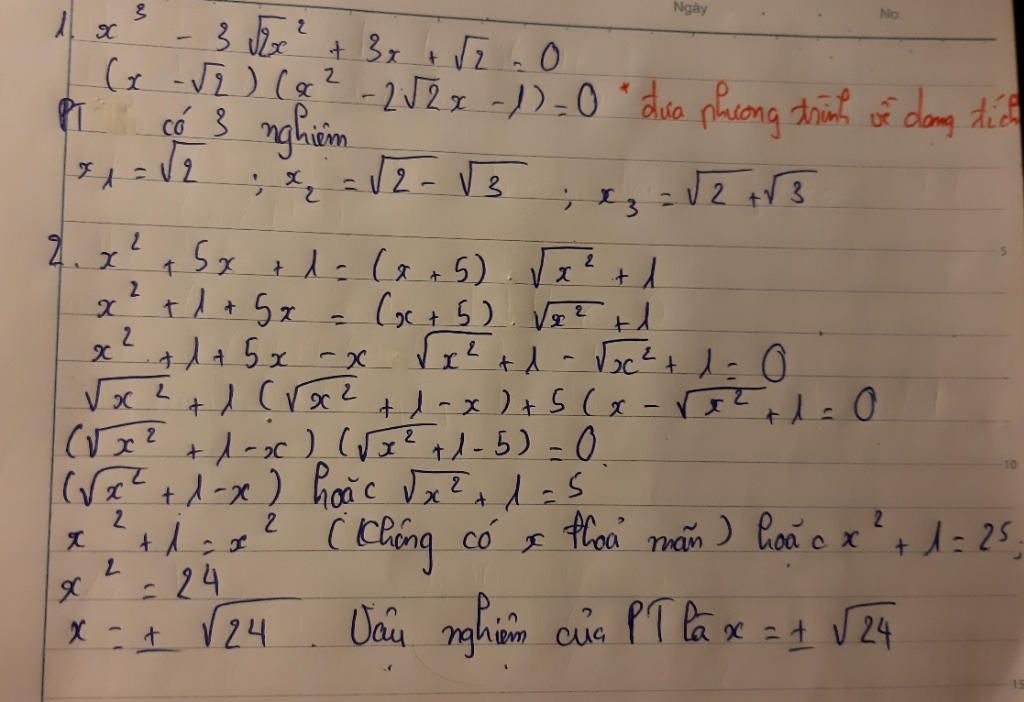 Ngày No.
1. x³ - 3√2x² + 3x + √2 = 0
(x - √2) (x² - 2√2x - 1) = 0 * đưa phương trình về dạng tích
PT có 3 nghiệm
x₁ = √2 ; x₂ = √2 - √3 ; x₃ = √2 + √3
5
2. x² + 5x + 1 = (x + 5) . √x² + 1
x² + 1 + 5x = (x + 5) . √x² + 1
x² + 1 + 5x - x √x² + 1 - √x² + 1 = 0
√x² + 1 (√x² + 1 - x) + 5 (x - √x² + 1 = 0
(√x² + 1 - x) (√x² + 1 - 5) = 0
10
(√x² + 1 - x) hoặc √x² + 1 = 5
x² + 1 = x² (Không có x thoả mãn) hoặc x² + 1 = 25;
x² = 24
x = ± √24 . Vậy nghiệm của PT là x = ± √24
15